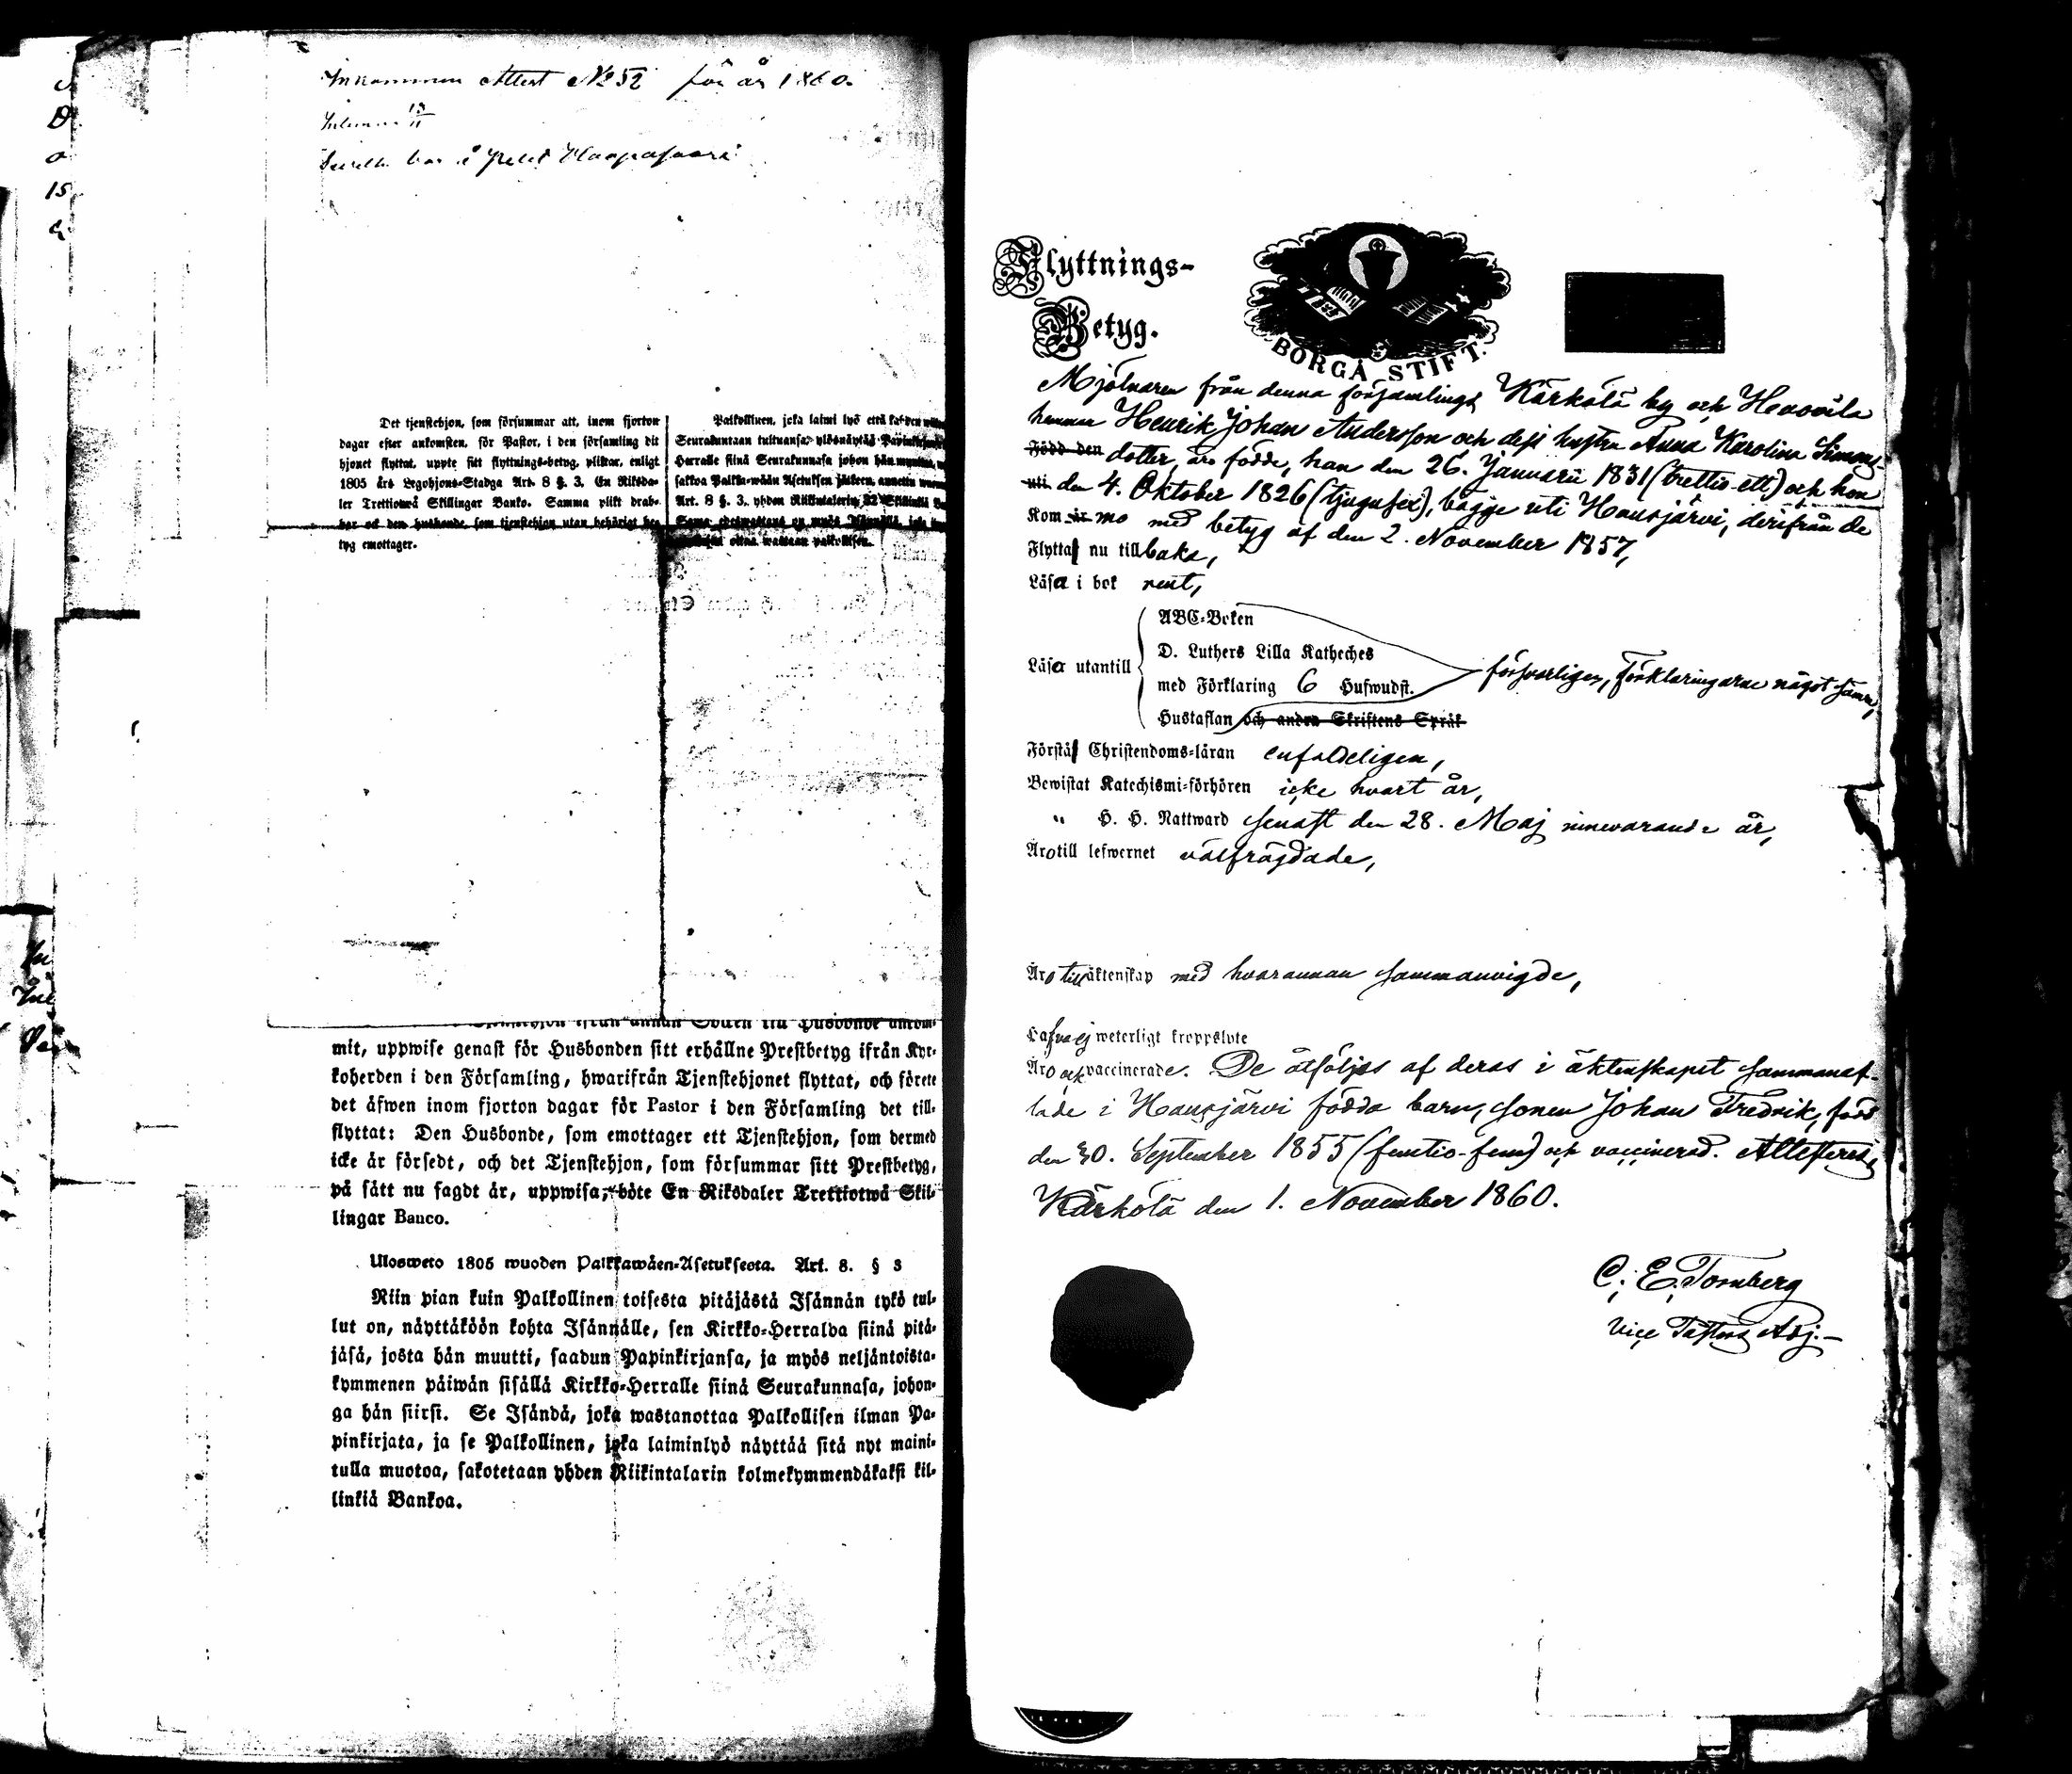 Inkommen Attest No 52 för år 1860.
13/11
bor i
Det tjenstehjon, som försummar att, inom fjorton
dagar efter ankomsten, för Pastor, i den församling dit
hjonet flyttat, uppte sitt flyttnings-betyg, pliktar, enligt
1805 års Legohjons-Stadga Art. 8 §. 3. En Riksda-
ler Trettiotwå Skillingar Banko. Samma plikt drab-
bar ock den husbonde, som tjenstehjon utan behörigt be-
tyg emottager.
Palkollinen, joka laimi lyö että
Seurakuntaan tultuansa ylösnäyttää
Herralle siinä Seurakunnasa johon hän
sakkoa Palkka-wäen Asetuksen jälkeen, annettu
Art. 8 §. 3. yhden Riikintalerin, 32 Skillinkiä
Sama
ottaa wastaan palkollisen.
mit, uppwise genast för Husbonden sitt erhållne Prestbetyg ifrån Kyr-
koherden i den Församling, hwarifrån Tjenstehjonet flyttat, och förete
det äfwen inom fjorton dagar för Pastor i den Församling det till-
flyttat: Den Husbonde, som emottager ett Tjenstehjon, som dermed
icke är försedt, och det Tjenstehjon, som försummar sitt Prestbetyg,
på sätt nu sagdt är, uppwisa, böte En Riksdaler Trettiotwå Skil-
lingar Banco.
Uloswoto 1805 wuoden Palkkawäen-Asetuksesta. Art. 8. § 3
Niin pian kuin Palkollinen toisesta pitäjästä Isännän tykö tul-
lut on, näyttäköön kohta Isännälle, sen Kirkko-Herralda siinä pitä-
jäsä, josta hän muutti, saadun Papinkirjansa, ja myös neljäntoista-
kymmenen päiwän sisällä Kirkko-Herralle siinä Seurakunnasa, johon-
ga hän siirsi. Se Isändä, joka wastanottaa Palkollisen ilman Pa-
pinkirjata, ja se Palkollinen, joka laiminlyö näyttää sitä nyt maini-
tulla muotoa, sakotetaan yhden Riikintalarin kolmekymmendäkaksi kil-
linkiä Bankoa.
Flyttnings-
Betyg.
BORGÅ STIFT.
Mjölnaren från denna församlings Kärkölä by och Howila
hemman Henrik Johan Andersson och dess hustru Anna Karolina Simons-
Född den dotter, äro födde, han den 26. Januarii 1831 (trettio-ett) och hon
uti den 4. Oktober 1826 (tjugusex), bägge uti Hausjärvi, derifrån de
Kommo med betyg af den 2. November 1857,
Flytta nu tillbaka,
Läsa i bok rent,
ABC-Boken
D. Luthers Lilla Katheches
Läsa utantill
med Förklaring 6 Hufwudst.
försvarligen, Förklaringarne något sämre,
Hustaflan och andra Skriftens Språk
Förstå Christendoms-läran enfaldeligen,
Bewistat Katechismi-förhören icke hvart år,
" H. H. Nattward senast den 28. Maj innevarande år,
Äro till lefwernet välfrägdade,
Äro till äktenskap med hvarannan sammanvigde,
Hafva ej weterligt kroppslyte
Äro ock vaccinerade. De åtföljes af deras i äktenskapet sammanaf-
lade i Hausjärvi födda barn, sonen Johan Fredrik, född
den 30. September 1855 (femtio-fem) och vaccinerad. Attesterar,
Kärkölä den 1. November 1860.
C. E. Tornberg
Vice Pastors Adj.